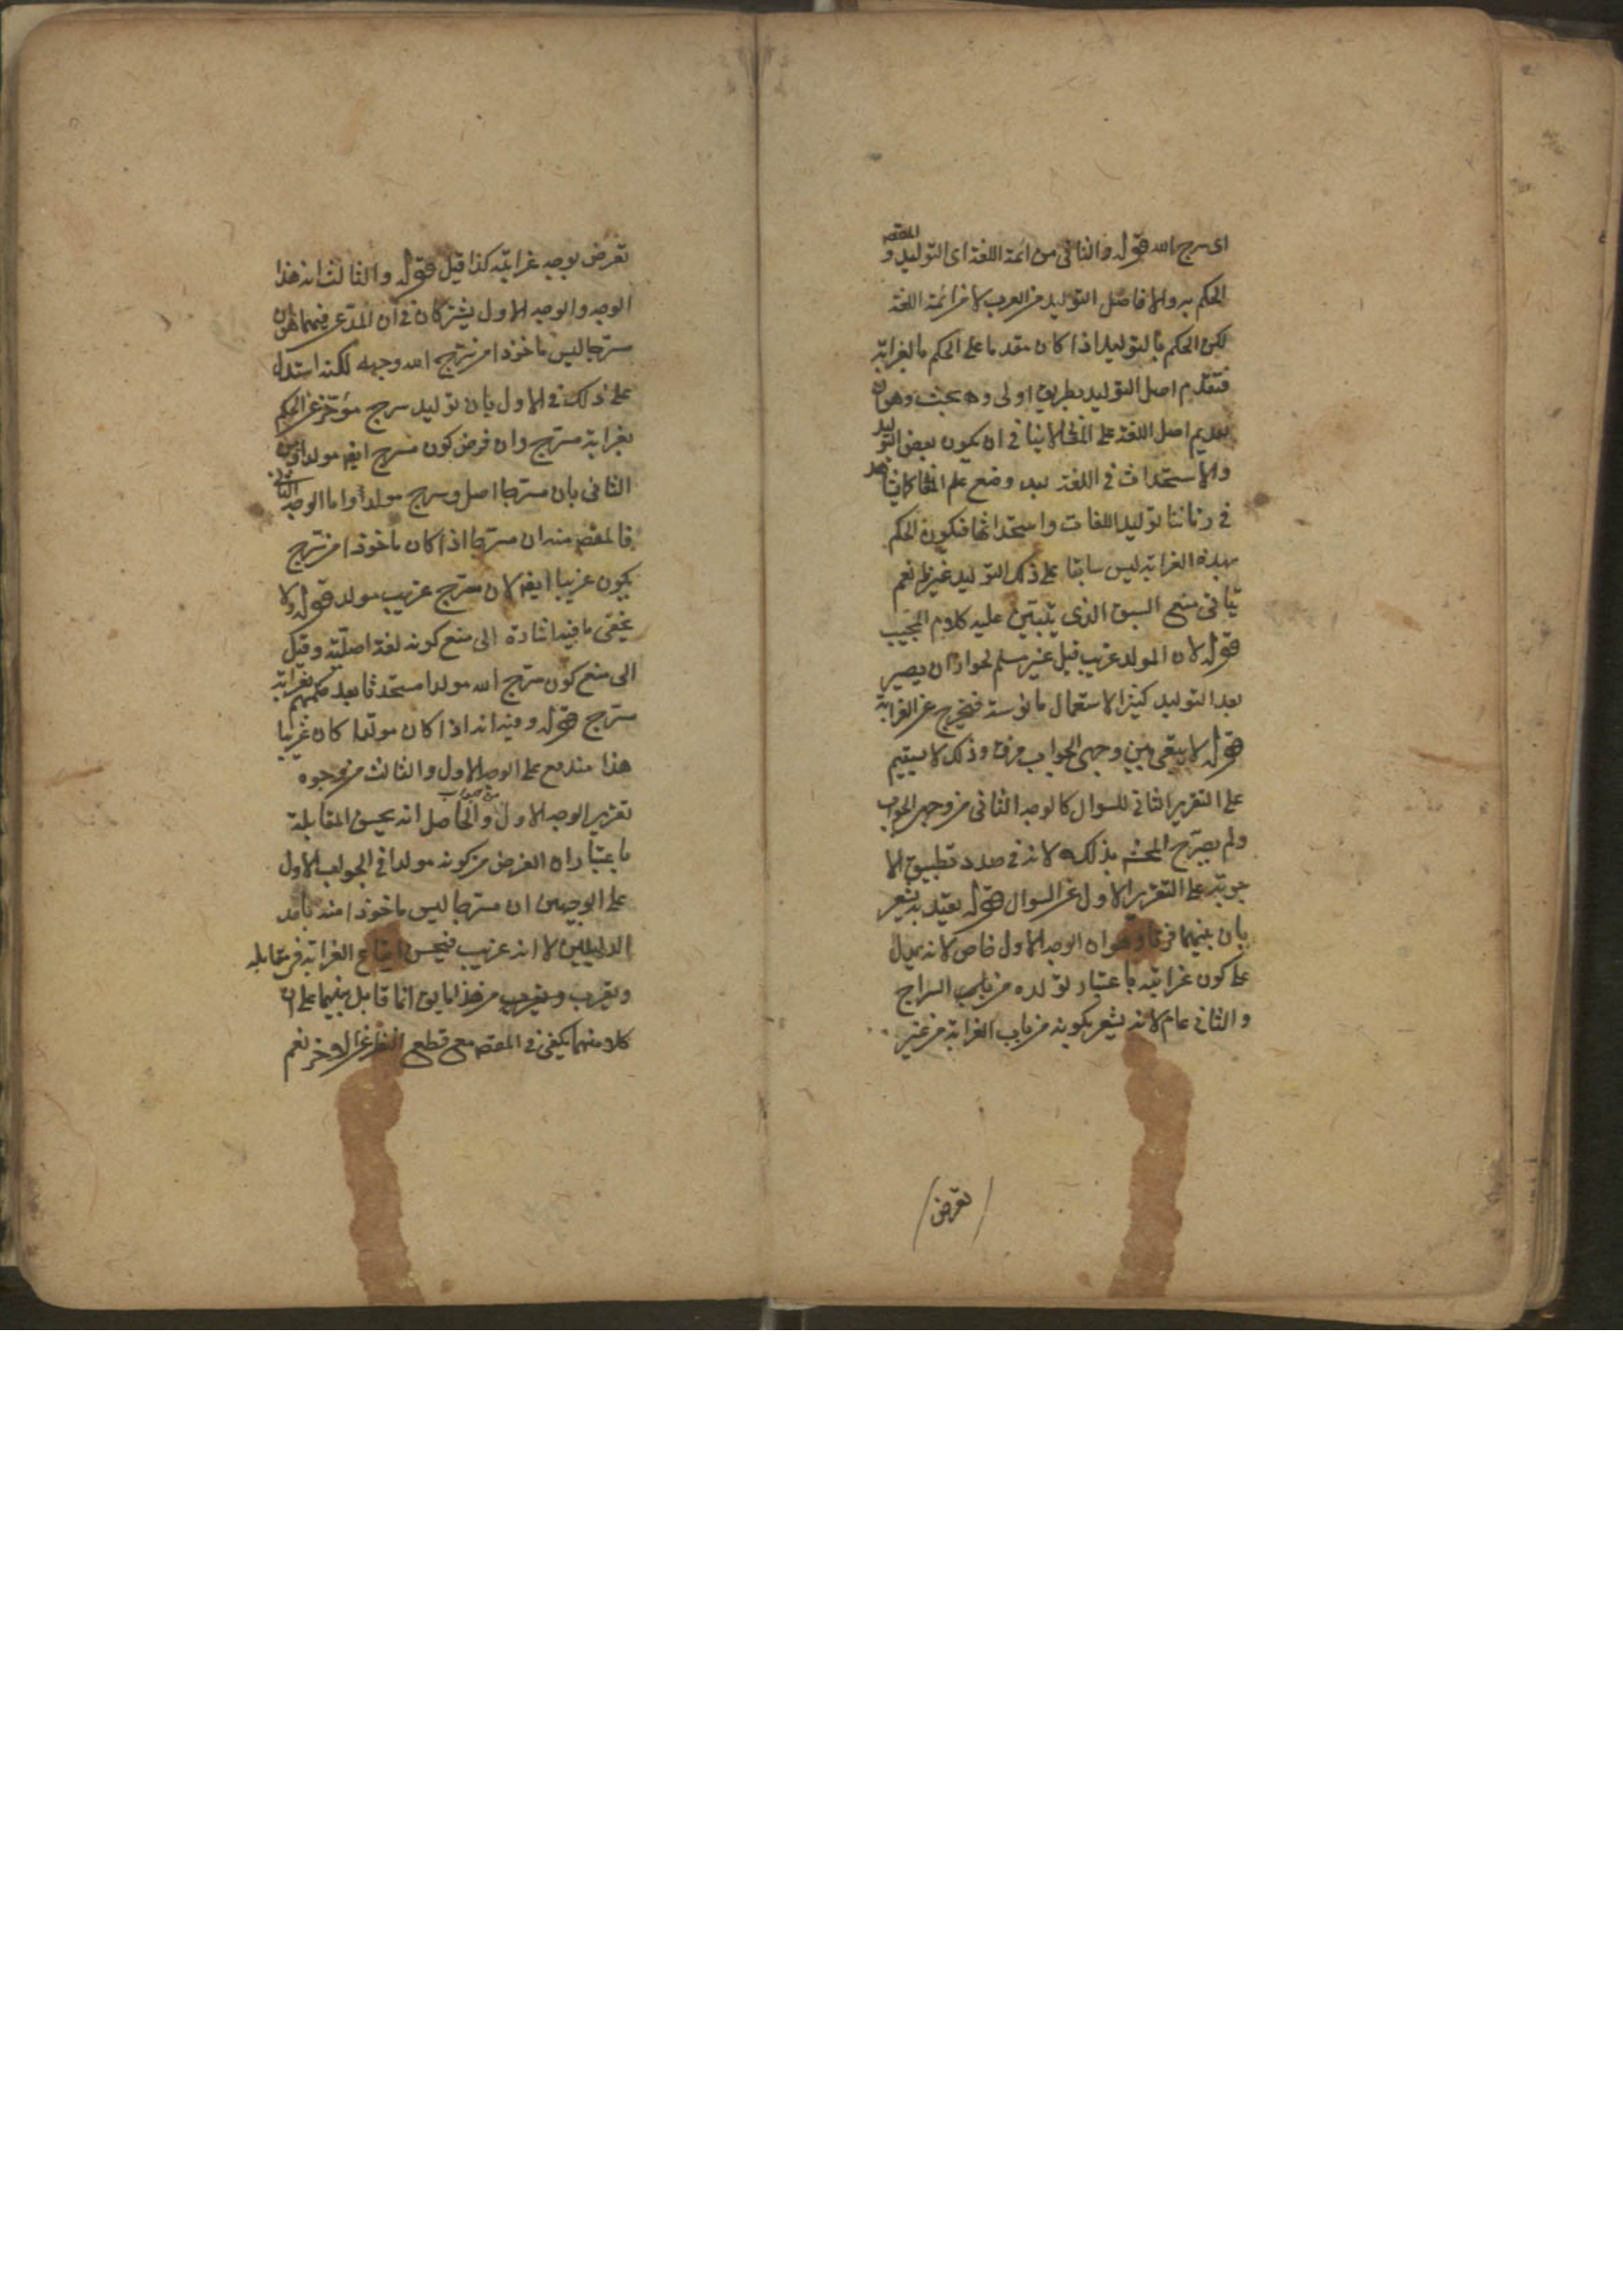 اى سرج الله قوله والثانى من ائمة اللغة اى التوليد و المقصـ
الحكم به والا فاصل التوليد من العرب لا من ائمة اللغة
لكن الحكم بالتوليد اذا كان مقدما على الحكم بالغرابة
فتقدم اصل التوليد بطريق اولى وه بحث وهو ان
تقديم اصل اللغة على لا ينافى ان يكون بعض التوليد
والاستحداث فى اللغة بعد وضع علم
فى زماننا توليد اللغات واستحداثها فيكون الحكم
بهذه الغرابة ليس سابقا على ذلك التوليد غير نعم
يتأتى منع السبق الذى يبتنى عليه كلام المجيب
قوله لان المولد غريب قيل غير مسلم لجواز ان يصير
بعد التوليد كثير الاستعمال مانوسة فيخرج عن الغرابة
قوله لا يبقى بين وجهى الجواب فرق وذلك لا يستقيم
على التقرير الثانى للسوال كالوجه الثانى من وجهى الجواب
ولم يصرح المحشـ بذلك لانه فى صدد تطبيق الا
جوبة على التقرير الاول عن السوال قوله بعيد يشعر
بان بينهما فرقا وهو ان الوجه الاول خاص لانه يدل
على كون غرابته باعتبار تولده من باب السراج
والثانى عام لانه يشعر بكونه من باب الغرابة من غير
تعرض
تعرض بوجه غرابته كذا قيل قوله والثالث ان هذا
الوجه والوجه الاول يشتركان فى ان المدعى فيهما هو ان
مسرجا ليس ماخوذا من سرج الله وجهه لكنه استدل
على ذلك فى الاول بان توليد سرج مؤخر عن الحكم
بغرابة مسرج وان فرض كون مسرج ايضـ مولدا وفى
الثانى بان مسرجا اصل وسرج مولد واما الوجه الثانى
فالمقصـ منه ان مسرجا اذا كان ماخوذا من سرج
يكون غريبا ايضـ لان سرج غريب مولد قوله ولا
يخفى ما فيه اشارة الى منع كونه لغة اصلية وقيل
الى منع كون سرج الله مولدا مستحدثا بعد حكمهم بغرابة
مسرج قوله وفيه انه اذا كان مولدا كان غريبا
هذا مندفع على الوجه الاول والثالث من وجوه
تقرير الوجه الاول والحاصل انه يحسن المقابلة
باعتبار ان الغرض من كونه مولدا فى الجواب الاول
على الوجهين ان مسرجا ليس ماخوذا منه باحد
الدليلين لا انه غريب فيحسن ايقاع الغرابة فى مقابله
ويقرب من هذا ما يق انما قابل بينهما على ان
كلا منهما يكفى فى المقصـ مع قطع النظر عن الاخر نعم